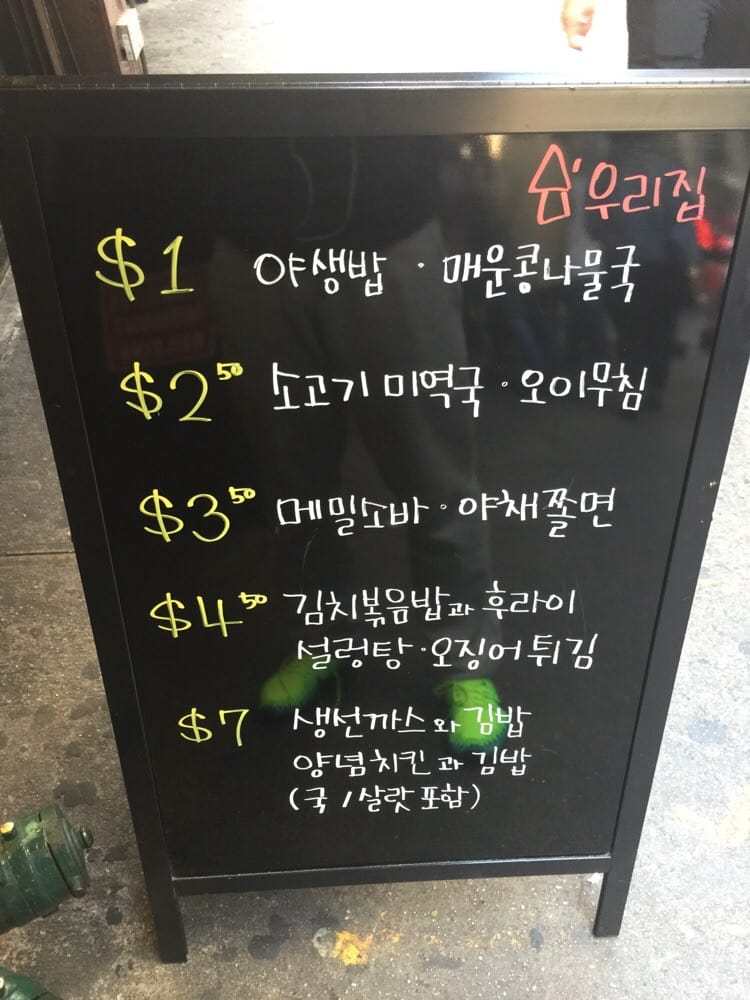 우리집
$1 야생밥 · 매운콩나물국
$2 50 소고기 미역국 · 오이무침
$3 50 메밀소바 · 야채쫄면
$4 50 김치볶음밥과 후라이
설렁탕 · 오징어튀김
$7 생선까스와 김밥
양념치킨과 김밥
(국 / 살랏 포함)